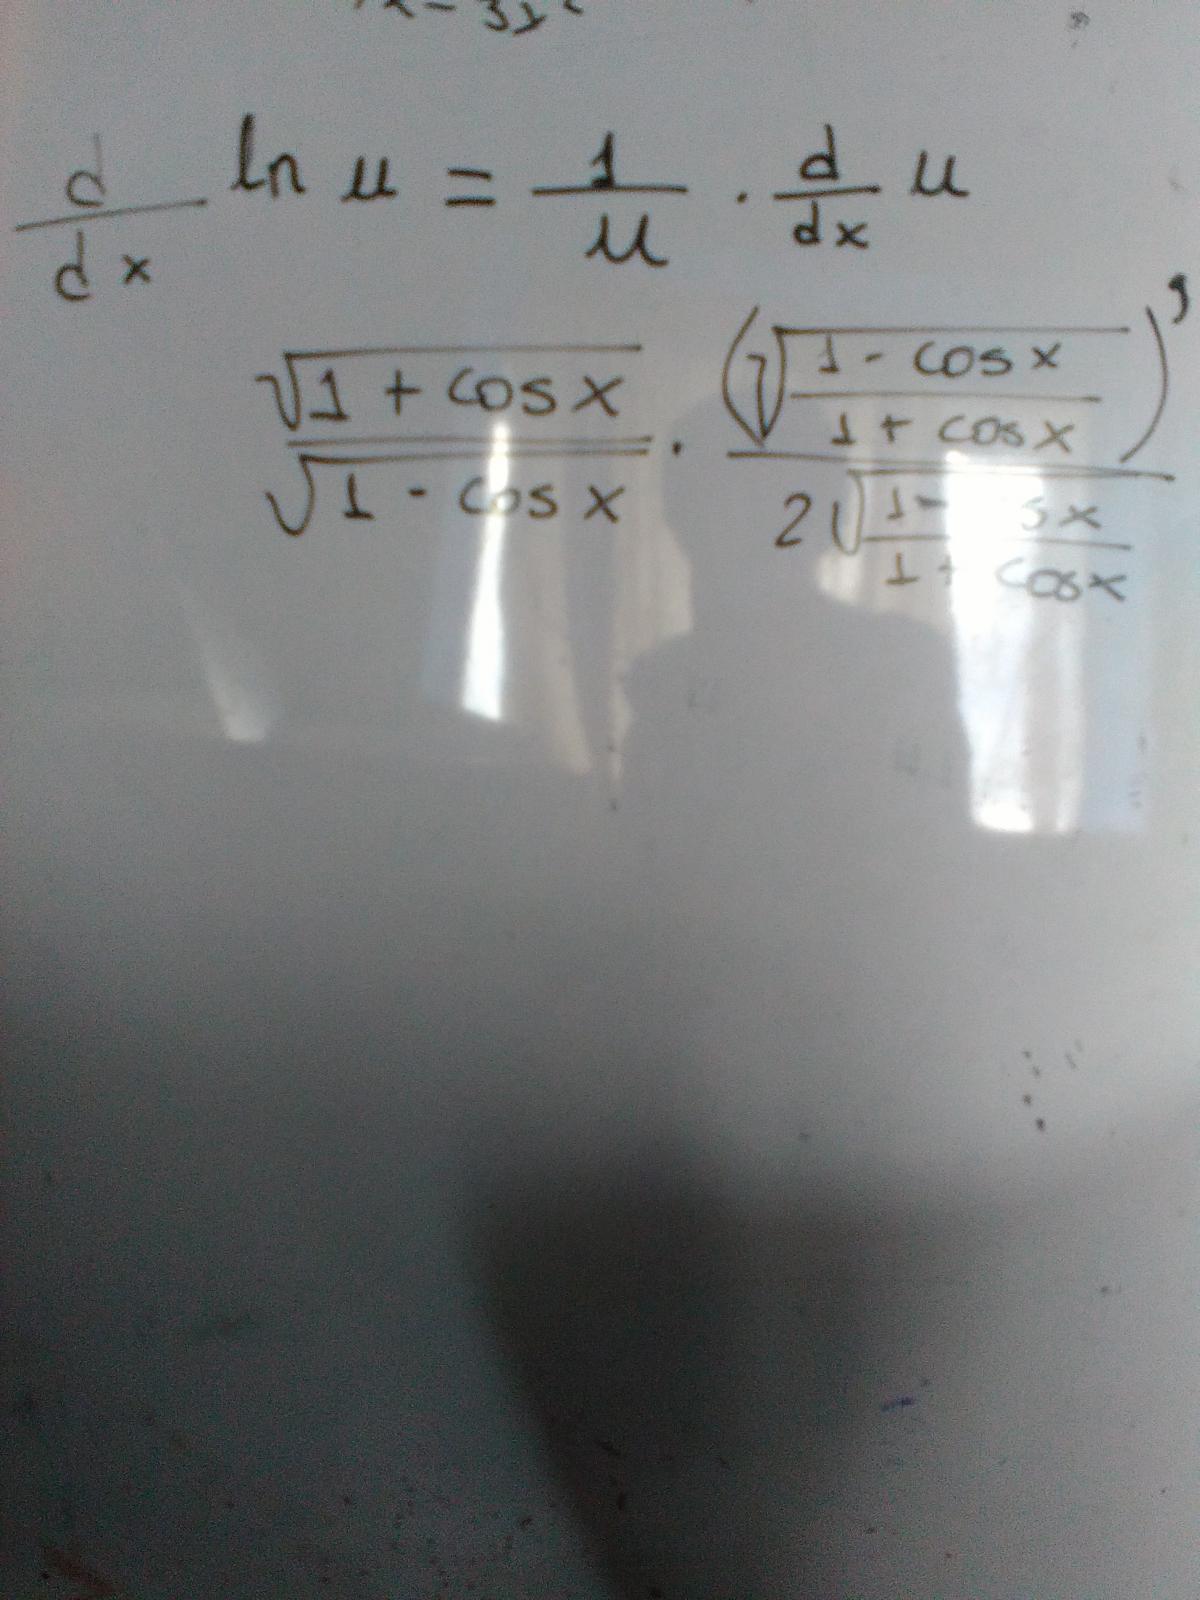 d/dx ln u = 1/u · d/dx u
√(1 + cos x)/√(1 - cos x) · (√((1 - cos x)/(1 + cos x)))' / 2√((1 - cos x)/(1 + cos x))